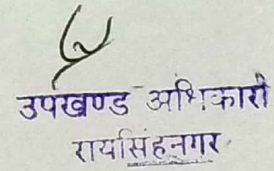 उपखण्ड अधिकारी
रायसिंहनगर